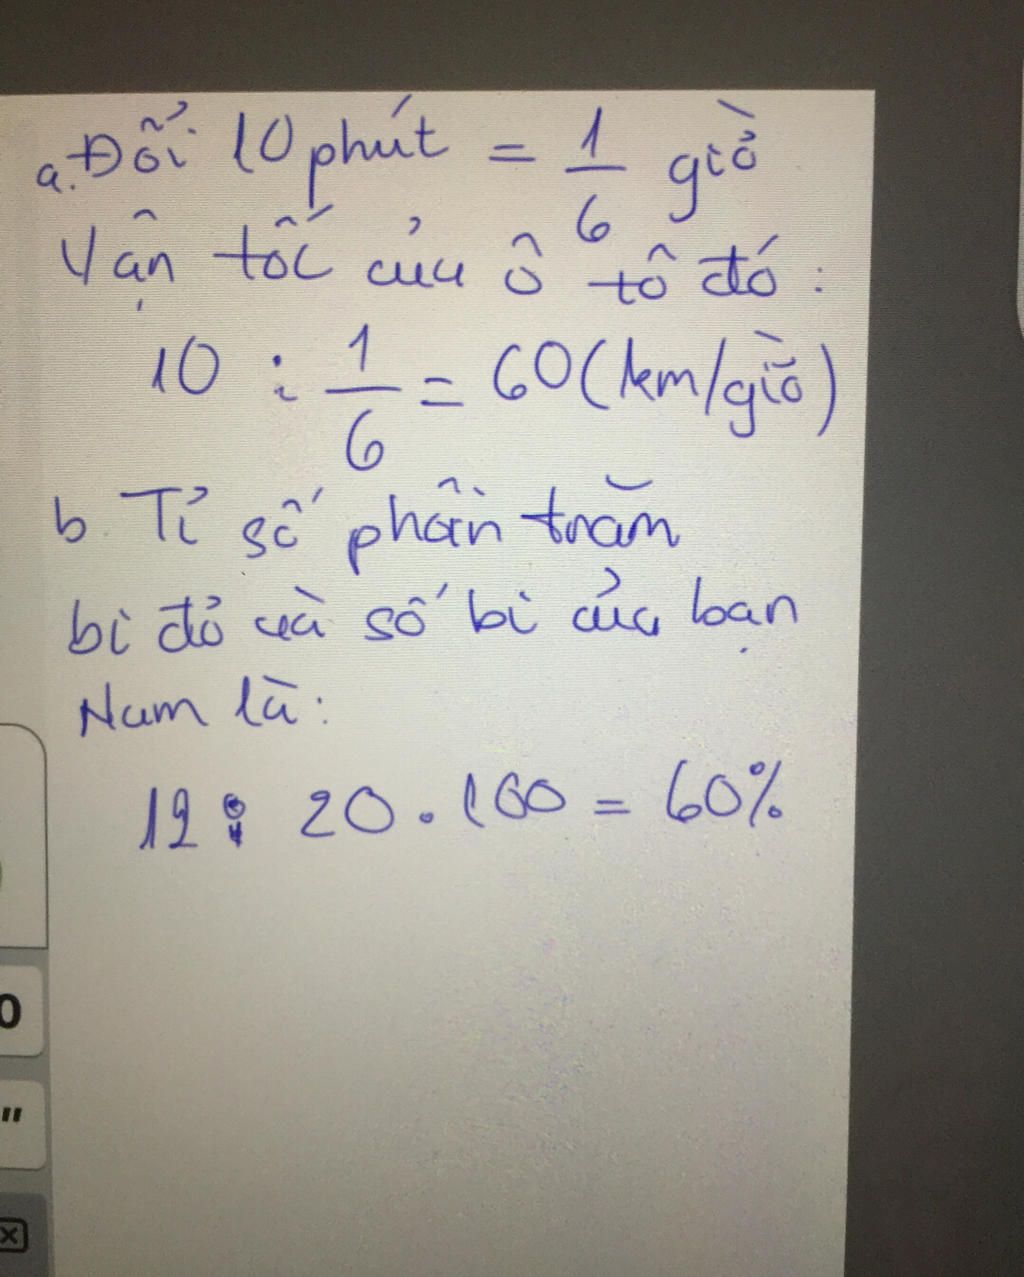 a. Đổi 10 phút = 1/6 giờ
Vận tốc của ô tô đó:
10 : 1/6 = 60 (km/giờ)
b. Tỉ số phần trăm
bi đỏ và số bi của bạn
Nam là:
12 : 20 . 100 = 60%
0
"